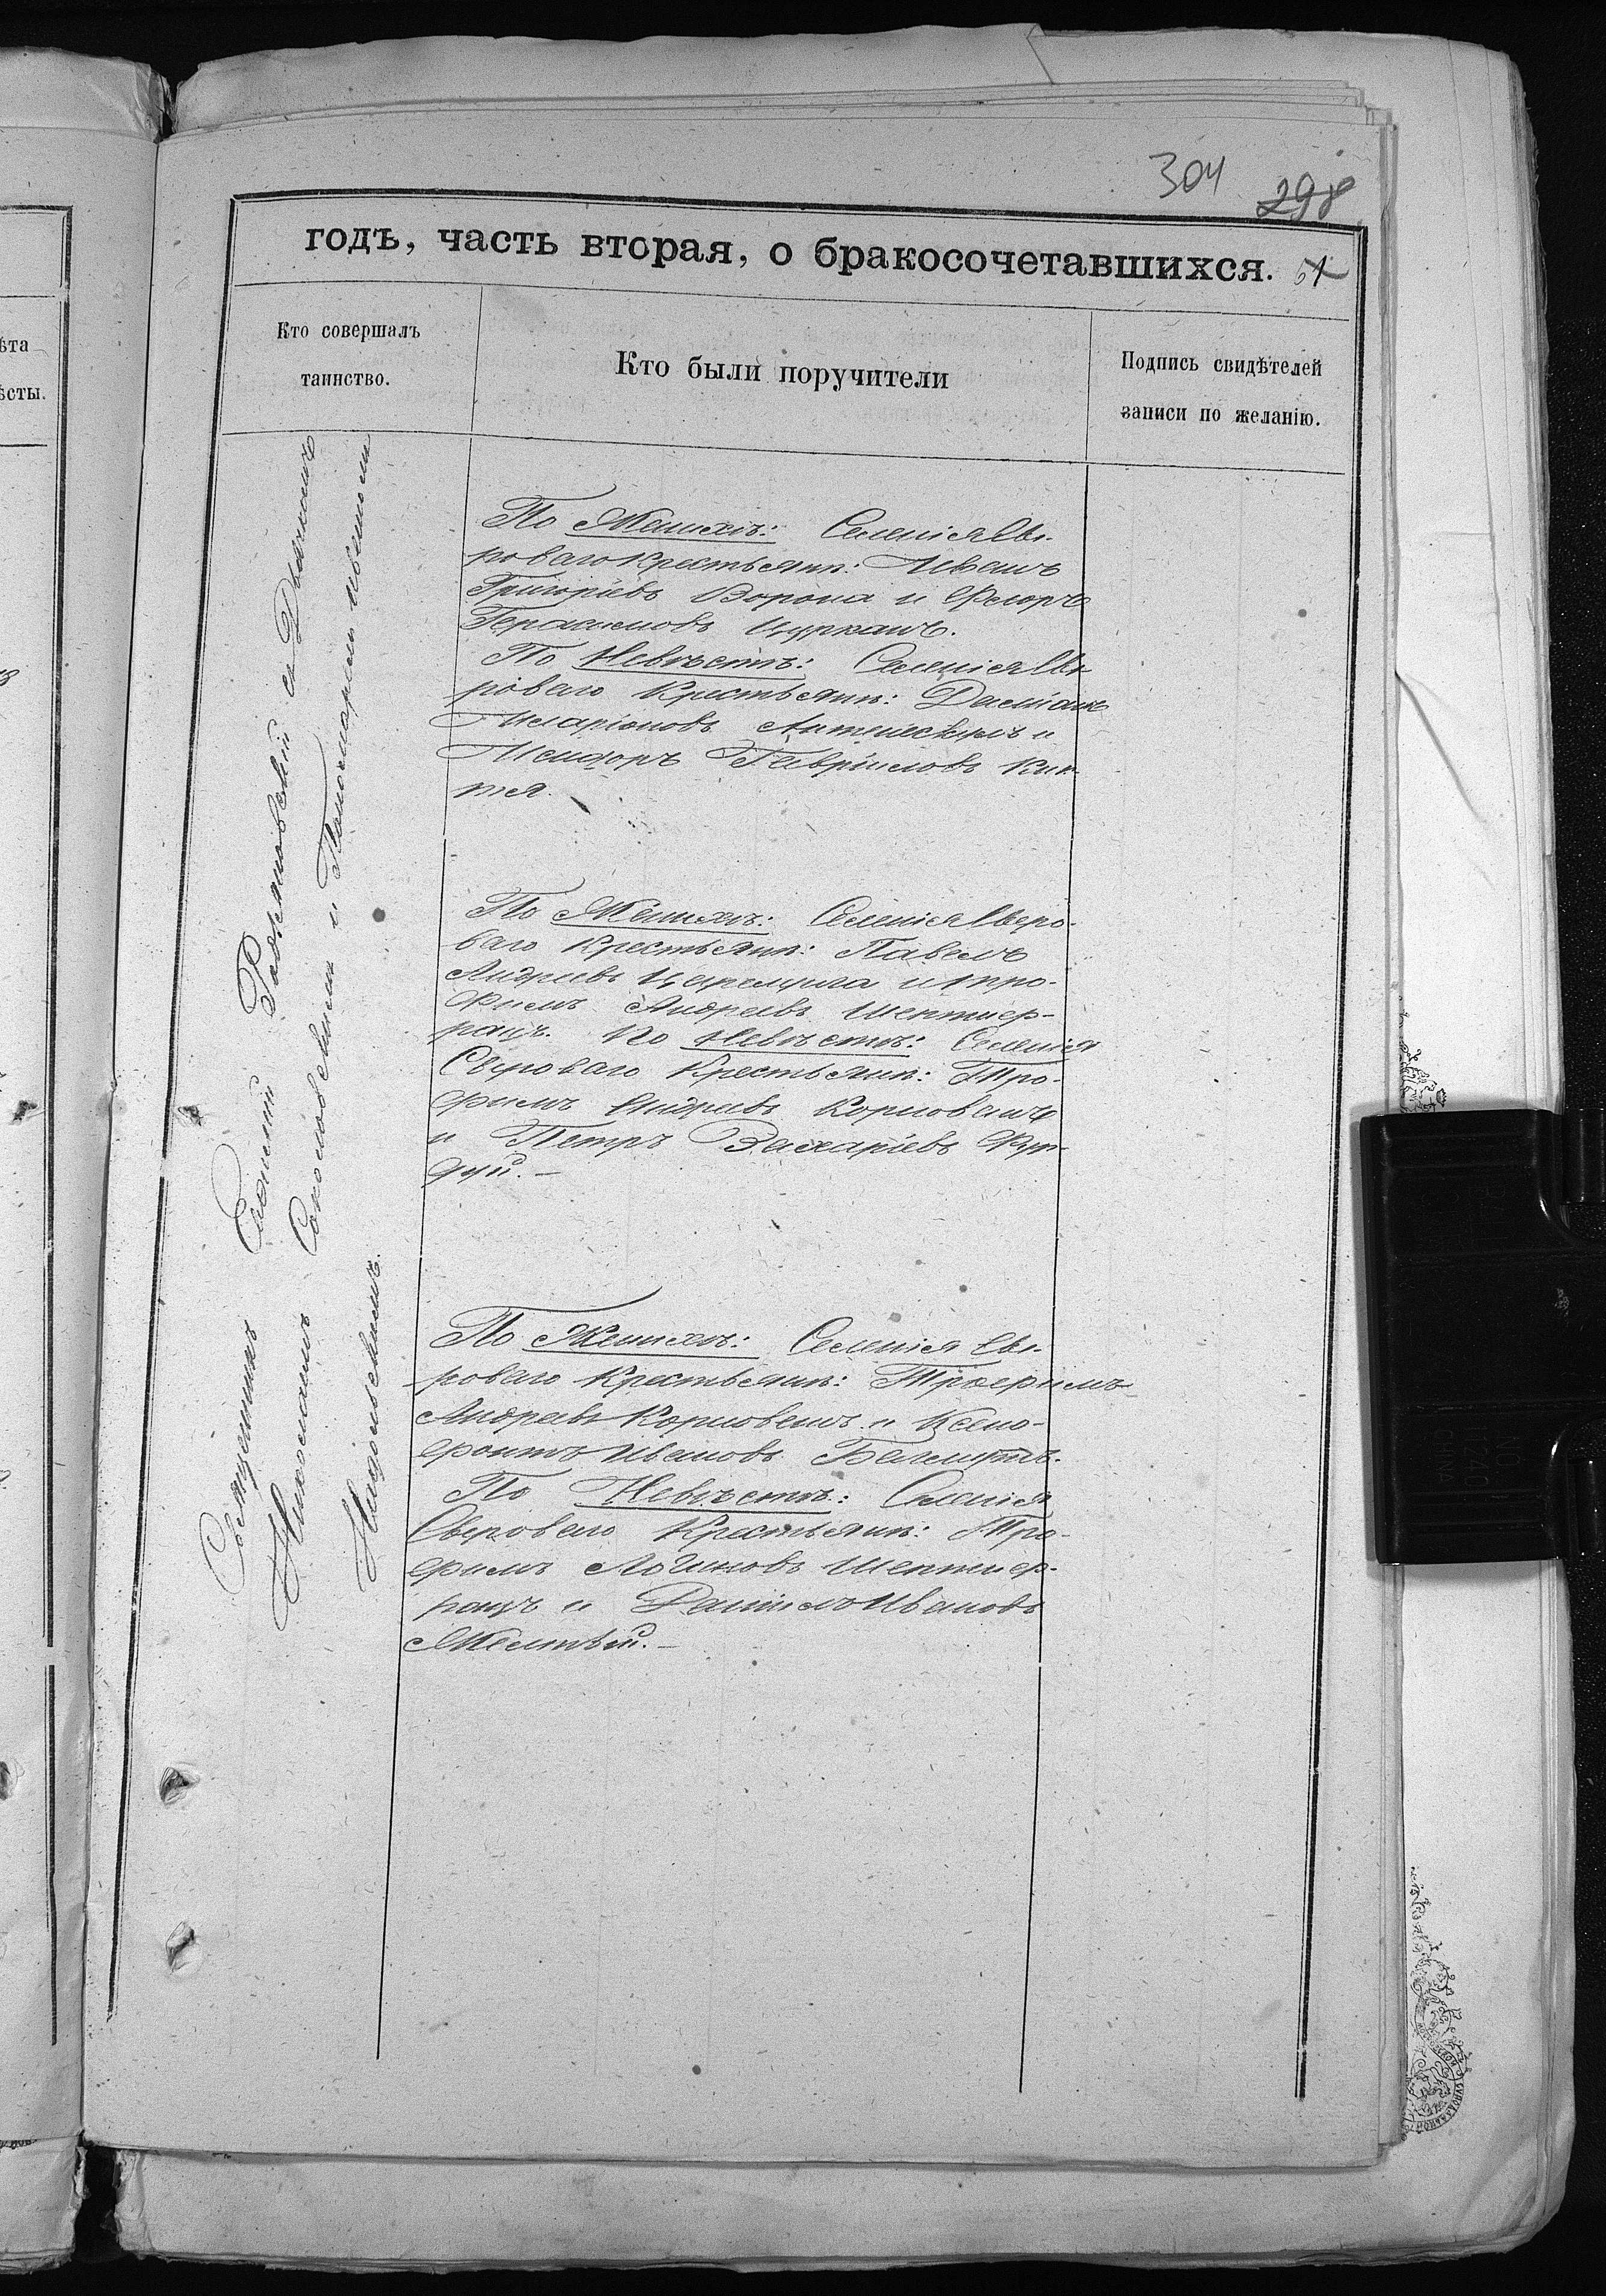 304
298
годъ, часть вторая, о бракосочетавшихся.
51
Кто совершалъ
таинство.
Кто были поручители
Подпись свидѣтелей
записи по желанію.
ѣта
ѣсты.
Священникъ Евфимій съ Дьячкомъ
Николаемъ Соколовскимъ и Пономаремъ
По Женихѣ: Селенія Сы-
роваго Крестьянп: Иванъ
Григоріевъ Ворона и Ѳеодоръ
Герасимовъ Цурканъ.
По Невѣстѣ: Селенія Сы-
роваго Крестьянп: Даміанъ
Иларіоновъ и
Исидоръ Гавріиловъ Кип-
тя.
По Женихѣ: Селенія Сыро-
ваго Крестьянп: Павелъ
Андреевъ и Тро-
фимъ Андреевъ Шептиер-
рацъ. По Невѣстѣ: Селенія
Сыроваго Крестьянп: Тро-
фимъ Андреевъ Корнованъ
и Петръ Захаріевъ Фун-
дуй.—
По Женихѣ: Селенія Сы-
роваго Крестьянп: Трофимъ
Андреевъ Корнованъ и Ксено-
фонтъ Ивановъ
По Невѣстѣ: Селенія
Сыроваго Крестьянп: Тро-
фимъ Логиновъ Шептиер-
рацъ и Даніилъ Ивановъ
Желтый.—